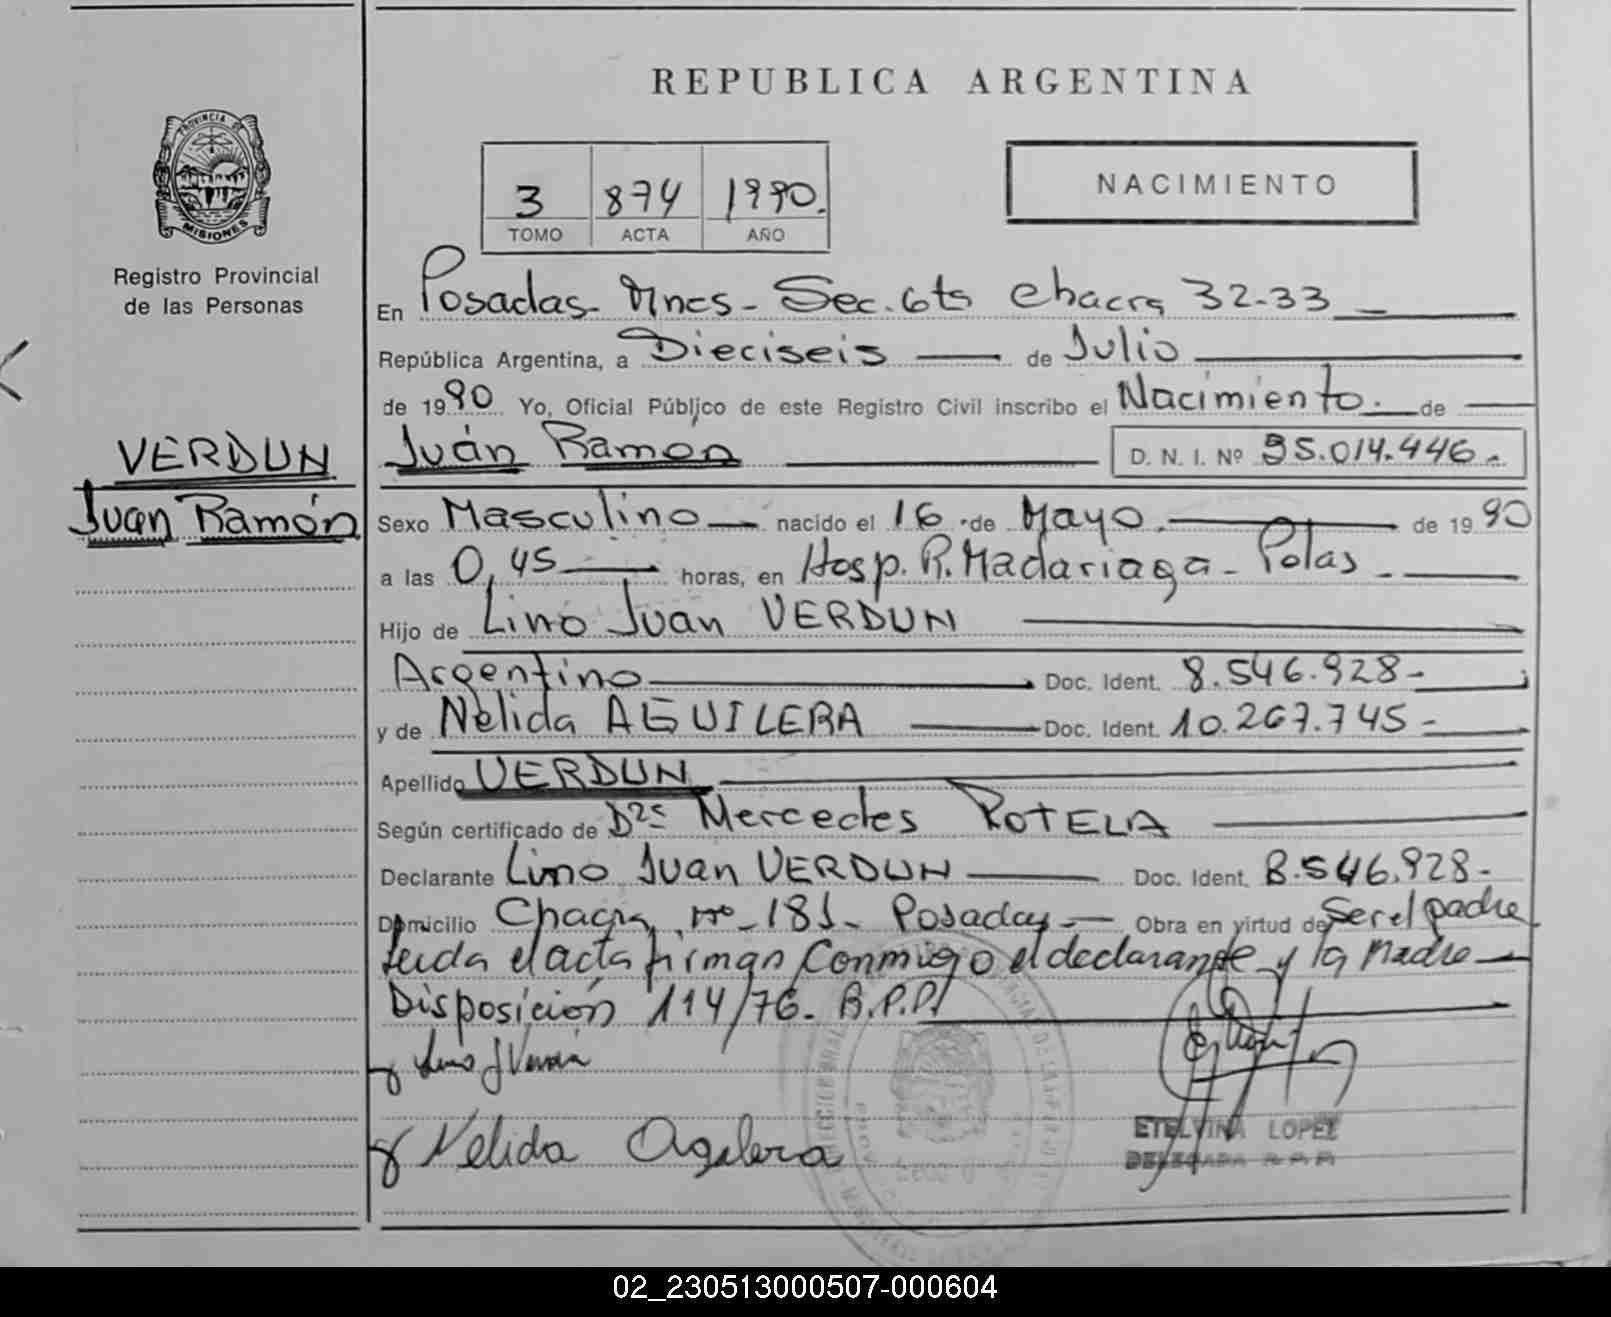 REPUBLICA ARGENTINA
PROVINCIA DE
MISIONES
Registro Provincial
de las Personas
3 874 1990.
TOMO ACTA AÑO
NACIMIENTO
En Posadas Mnes - Sec. 6ta chacra 32-33
República Argentina, a Dieciseis de Julio
de 1990 Yo, Oficial Público de este Registro Civil inscribo el Nacimiento. de
VERDUN
Juan Ramón
Juán Ramon D. N. I. Nº 35.014.446.-
Sexo Masculino nacido el 16 de Mayo. de 1990
a las 0,45 horas, en Hosp. R. Madariaga - Pdas -
Hijo de Lino Juan VERDUN
Argentino Doc. Ident. 8.546.928-
y de Nélida AGUILERA Doc. Ident. 10.267.745-
Apellido VERDUN
Según certificado de Dra Mercedes ROTELA
Declarante Lino Juan VERDUN Doc. Ident. 8.546.928-
Domicilio Chacra nº - 181 - Posadas Obra en virtud de ser el padre
Leida el acta firman conmigo el declarante y la madre
Disposición 114/76. R.P.P.
Nelida Agilera
ETELVINA LOPEZ
DELEGADA
02_230513000507-000604